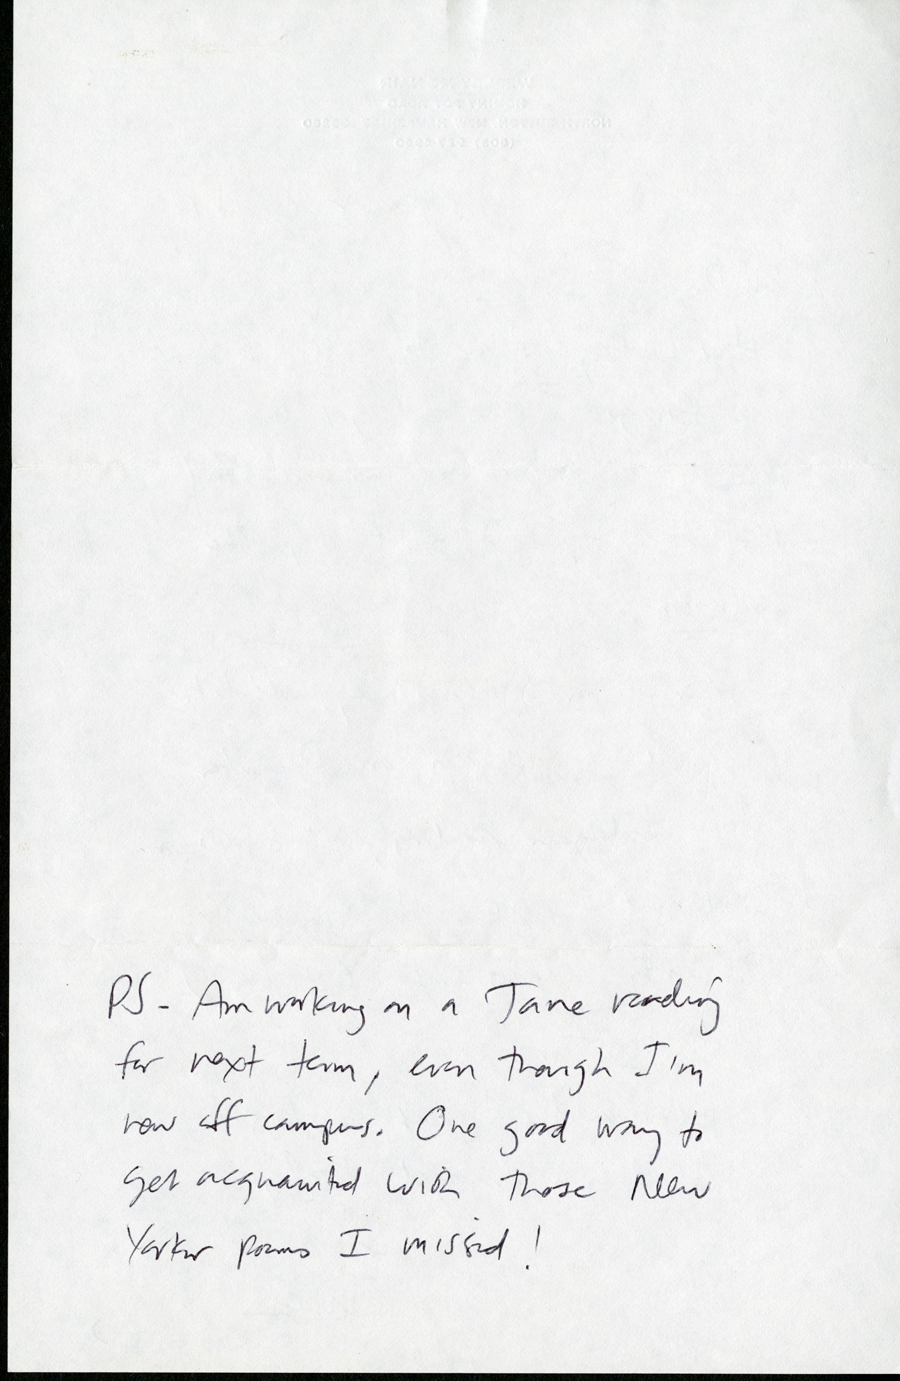 PS - Am working on a Jane reading
for next term, even though I'm
now off campus. One good way to
get acquainted with those New
Yorker poems I missed!